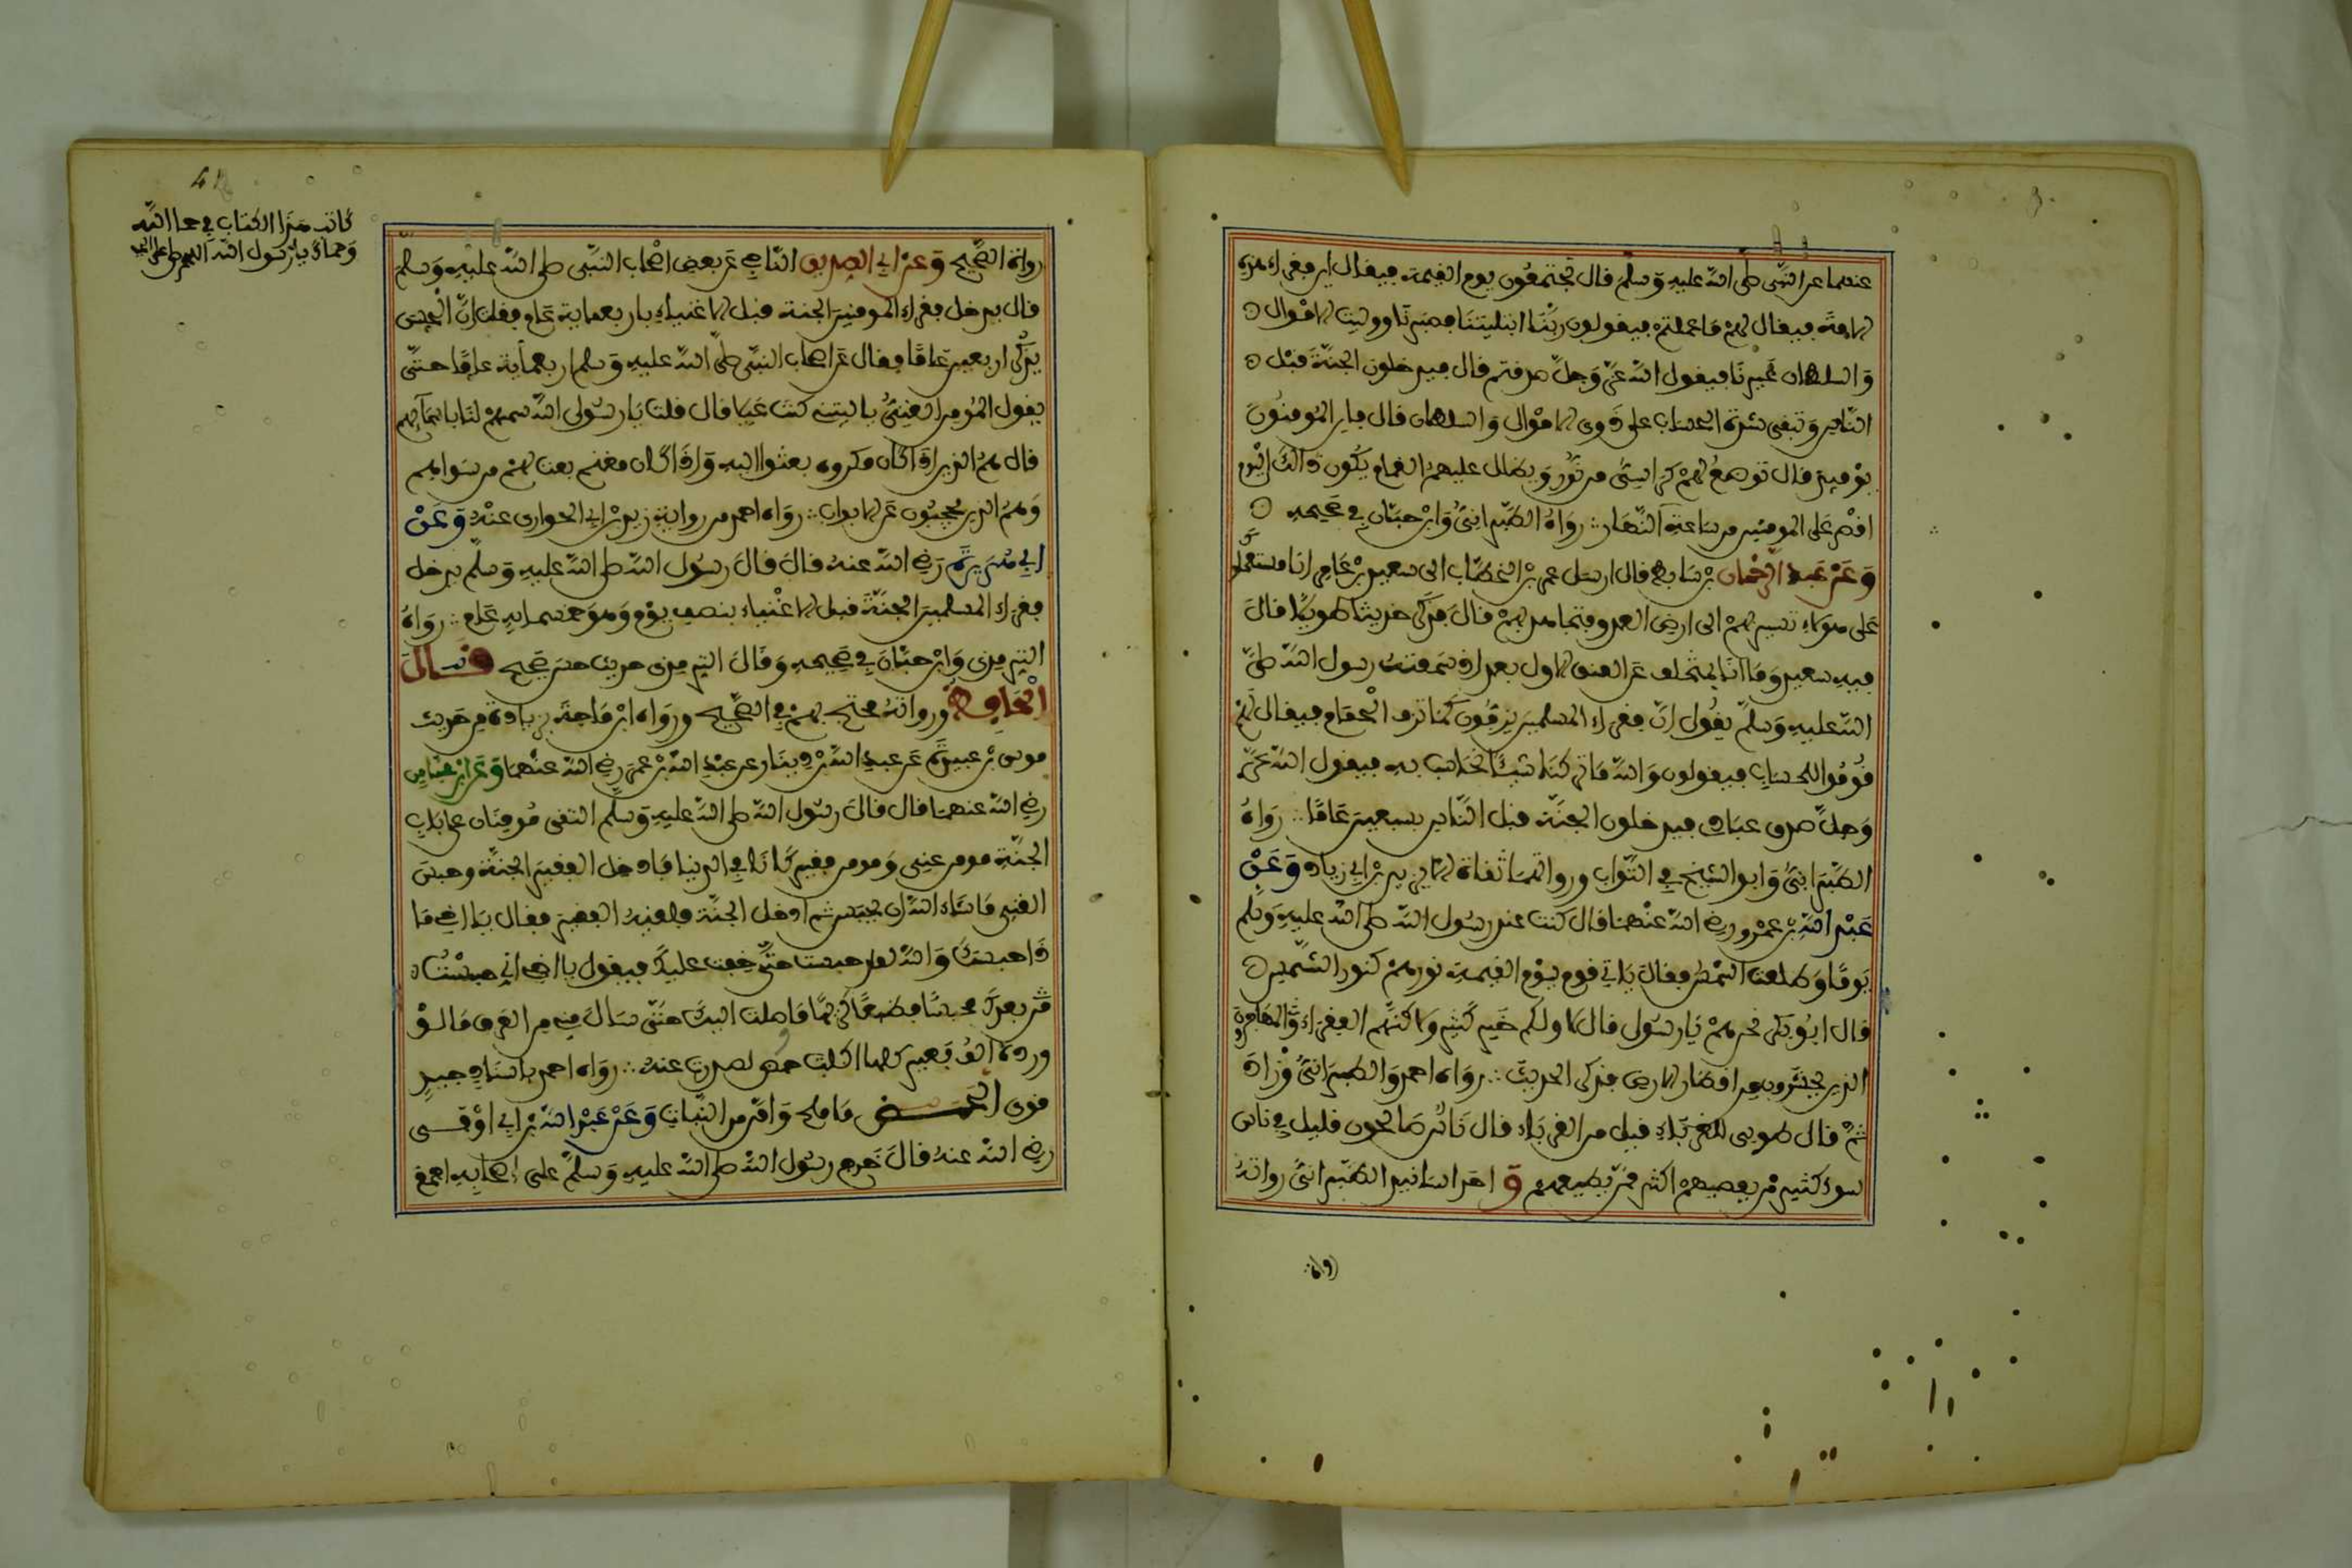 عنهما عن النبي صلى الله عليه وسلم قال تجتمعون يوم القيمة فيقال اين فقراء هذه
الامة فيقال لهم ما عملتم فيقولون ربنا ابتليتنا فصبرنا ووليت الاموال
والسلطان غيرنا فيقول الله عز وجل صدقتم قال فيدخلون الجنة قبل
الناس وتبقى شدة الحساب على ذوي الاموال والسلطان قال فاين المومنون
يومئذ قال توضع لهم كراسي من نور ويظلل عليهم الغمام يكون ذالك اليوم
اقصر على المومنين من ساعة النهار رواه الطبراني وابن حبان في صحيحه
وعن عبد الرحمان بن سابط قال ارسل عمر بن الخطاب الى سعيد بن عامر انا مستعملوك
على هولاء تسير بهم الى ارض العدو فتجاهد بهم قال فذكر حديثا طويلا قال
فيه سعيد وما انا بمتخلف عن العنق الاول بعد اذ سمعت رسول الله صلى
الله عليه وسلم يقول ان فقراء المسلمين يزفون كما تزف الحمام فيقال لهم
قوموا للحساب فيقولون والله ما تركنا شيئا نحاسب به فيقول الله عز
وجل صدق عبادي فيدخلون الجنة قبل الناس بسبعين عاما رواه
الطبراني وابو الشيخ في الثواب ورواتهما ثقاة الا يزيد بن ابي زياد وعن
عبد الله بن عمرو رضي الله عنهما قال كنت عند رسول الله صلى الله عليه وسلم
يوما وطلعت الشمس فقال ياتي قوم يوم القيمة نورهم كنور الشمس
قال ابو بكر نحن هم يا رسول قال لا ولكم خير كثير ولاكنهم الفقراء والمهاجرون
الذين يحشرون من اقطار الارض فذكر الحديث رواه احمد والطبراني وزاد
ثم قال طوبى للغرباء قيل من الغرباء قال ناس صالحون قليل في ناس
سوء كثير من يعصيهم اكثر ممن يطيعهم و احد اسانيد الطبراني رواته
رواته
كاتب هذا الكتاب في حما الله
وحماك يا رسول الله اللهم صل على
رواة الصحيح وعن ابي الصديق الناجي عن بعض اصحاب النبي صلى الله عليه وسلم
قال يدخل فقراء المومنين الجنة قبل الاغنياء باربعماية عام فقلت ان الحسن
يذكر اربعين عاما فقال عن اصحاب النبي صلى الله عليه وسلم اربعماية عاما حتى
يقول المومن الغني يا ليتني كنت عيلا قال قلت يا رسول الله سمهم لنا باسمآيهم
قال هم الذين اذا كان مكروه بعثوا اليه واذا كان مغنم بعث لهم من سواهم
وهم الذين يحجبون عن الابواب رواه احمد من رواية زيد بن ابي الحواري عنه وعن
ابي هريرة رضي الله عنه قال قال رسول الله صلى الله عليه وسلم يدخل
فقراء المسلمين الجنة قبل الاغنياء بنصف يوم وهو خمسماية عام رواه
الترمذي وابن حبان في صحيحه وقال الترمذي حديث حسن صحيح قال
الحافظ ورواته محتج بهم في الصحيح ورواه ابن ماجة بزيادة من حديث
موسى بن عبيدة عن عبد الله بن دينار عن عبد الله بن عمر رضي الله عنهما وعن ابن عباس
رضي الله عنهما قال قال رسول الله صلى الله عليه وسلم التقى مومنان على باب
الجنة مومن غني ومومن فقير كانا في الدنيا فادخل الفقير الجنة وحبس
الغني ما شاء الله ان يحبس ثم ادخل الجنة فلقيه الفقير فقال يا اخي ما
ذا حبسك والله لقد حبست حتى خفت عليك فيقول يا اخي اني حبست
بعدك محبسا فظيعا كريها ما وصلت اليك حتى سال مني من العرق ما لو
ورده الف بعير كلها اكلت حمض لصدرت عنه رواه احمد باسناد جيد
قوي الحمض ما ملح وامر من النبات وعن عبد الله بن ابي اوفى
رضي الله عنه قال خرج رسول الله صلى الله عليه وسلم على اصحابه اجمع